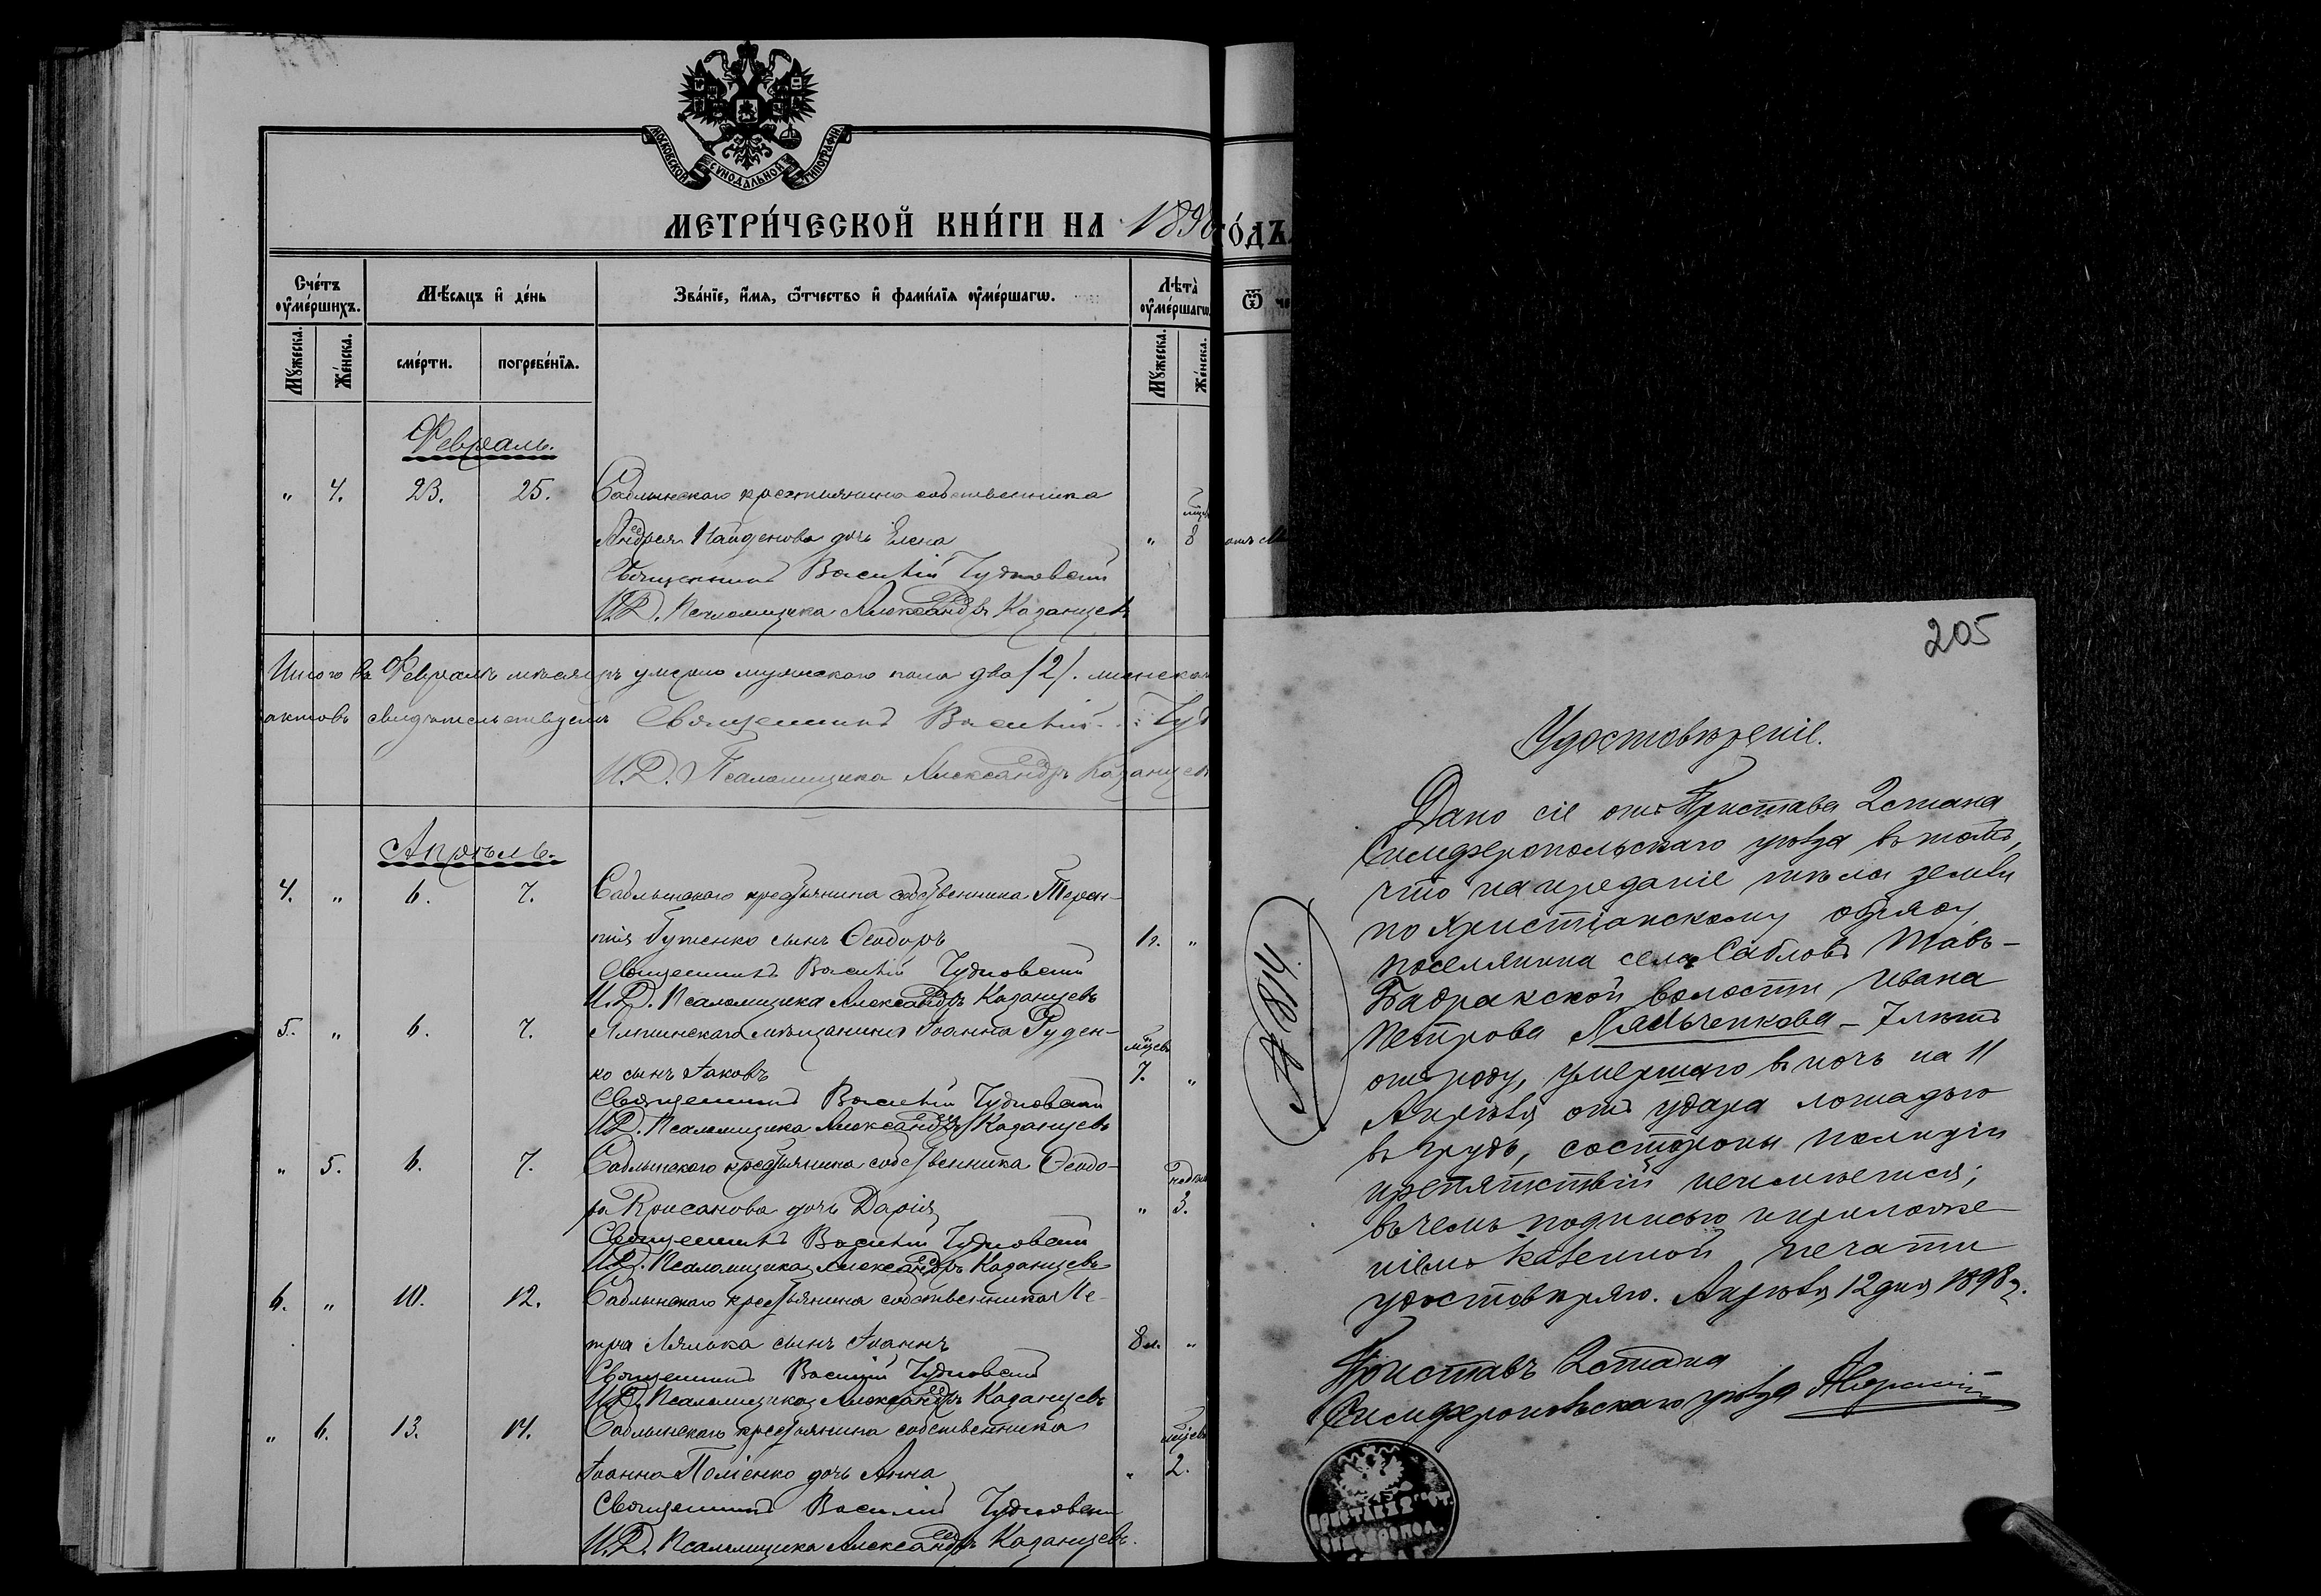 МОСКОВСКОЙ СѴНОДАЛЬНОЙ ТИПОГРАФІИ
МЕТРИ́ЧЕСКОЙ КНИ́ГИ НА 1898 ГО́ДЪ
Сче́тъ ᲂу҆ме́ршихъ.
Мѣ́сяцъ и҆ де́нь
Зва́нїе, и҆́мя, ѻ҆́тчество и҆ фами́лїя ᲂу҆ме́ршагѡ.
Лѣ́та ᲂу҆ме́ршагѡ
Ѿ че
Му́жеска.
Же́нска.
сме́рти.
погребе́нїя.
Му́жеска.
Же́нска.
Февраль.
" 4. 23. 25. Саблынскаго крестьянина собственника
Андрея Найденова дочь Елена " 8
Священникъ Василій Чудновскій
И.Д. Псаломщика Александръ Казанцевъ
Итого въ Февралѣ мѣсяцѣ умерло мужескаго пола два /2/. женскаго
актовъ свидѣтельствуемъ Священникъ Василій Чуд
И.Д. Псаломщика Александръ Казанцевъ
Апрѣль.
4. " 6. 7. Саблынскаго крестьянина собственника Терен-
тія Гуменко сынъ Ѳеодоръ 1г. "
Священникъ Василій Чудновскій
И.Д. Псаломщика Александръ Казанцевъ
5. " 6. 7. Ялтинскаго мѣщанина Іоанна Руден-
ко сынъ Іаковъ мѣсцевъ 7. "
Священникъ Василій Чудновскій
И.Д. Псаломщика Александръ Казанцевъ
" 5. 6. 7. Саблынскаго крестьянина собственника Ѳеодо-
ра Крисанова дочь Дарія " 3.
Священникъ Василій Чудновскій
И.Д. Псаломщика Александръ Казанцевъ
6. " 10. 12. Саблынскаго крестьянина собственника Пе-
тра Лялька сынъ Іоаннъ 8 л. "
Священникъ Василій Чудновскій
И.Д. Псаломщика Александръ Казанцевъ
" 6. 13. 14. Саблынскаго крестьянина собственника
Іоанна Поліенко дочь Анна " 2.
Священникъ Василій Чудновскій
И.Д. Псаломщика Александръ Казанцевъ.
205
Удостовѣреніе.
Дано сіе отъ Пристава 2 стана
Симферопольскаго уѣзда въ томъ,
что на преданіе тѣла землѣ
по христіанскому обряду
поселянина села Сабловъ Тавъ-
Бадракской волости, Ивана
Петрова Ляльченкова - 7 лѣтъ
отъ роду, умершаго въ ночь на 11
Апрѣля отъ удара лошадью
въ грудь, состороны полиціи
препятствій неимѣется;
въ чемъ подписью и приложе-
ніемъ казенной печати
удостовѣряю. Апрѣля 12 дня 1898 г.
Приставъ 2 стана
Симферопольскаго уѣзда
№ 1814